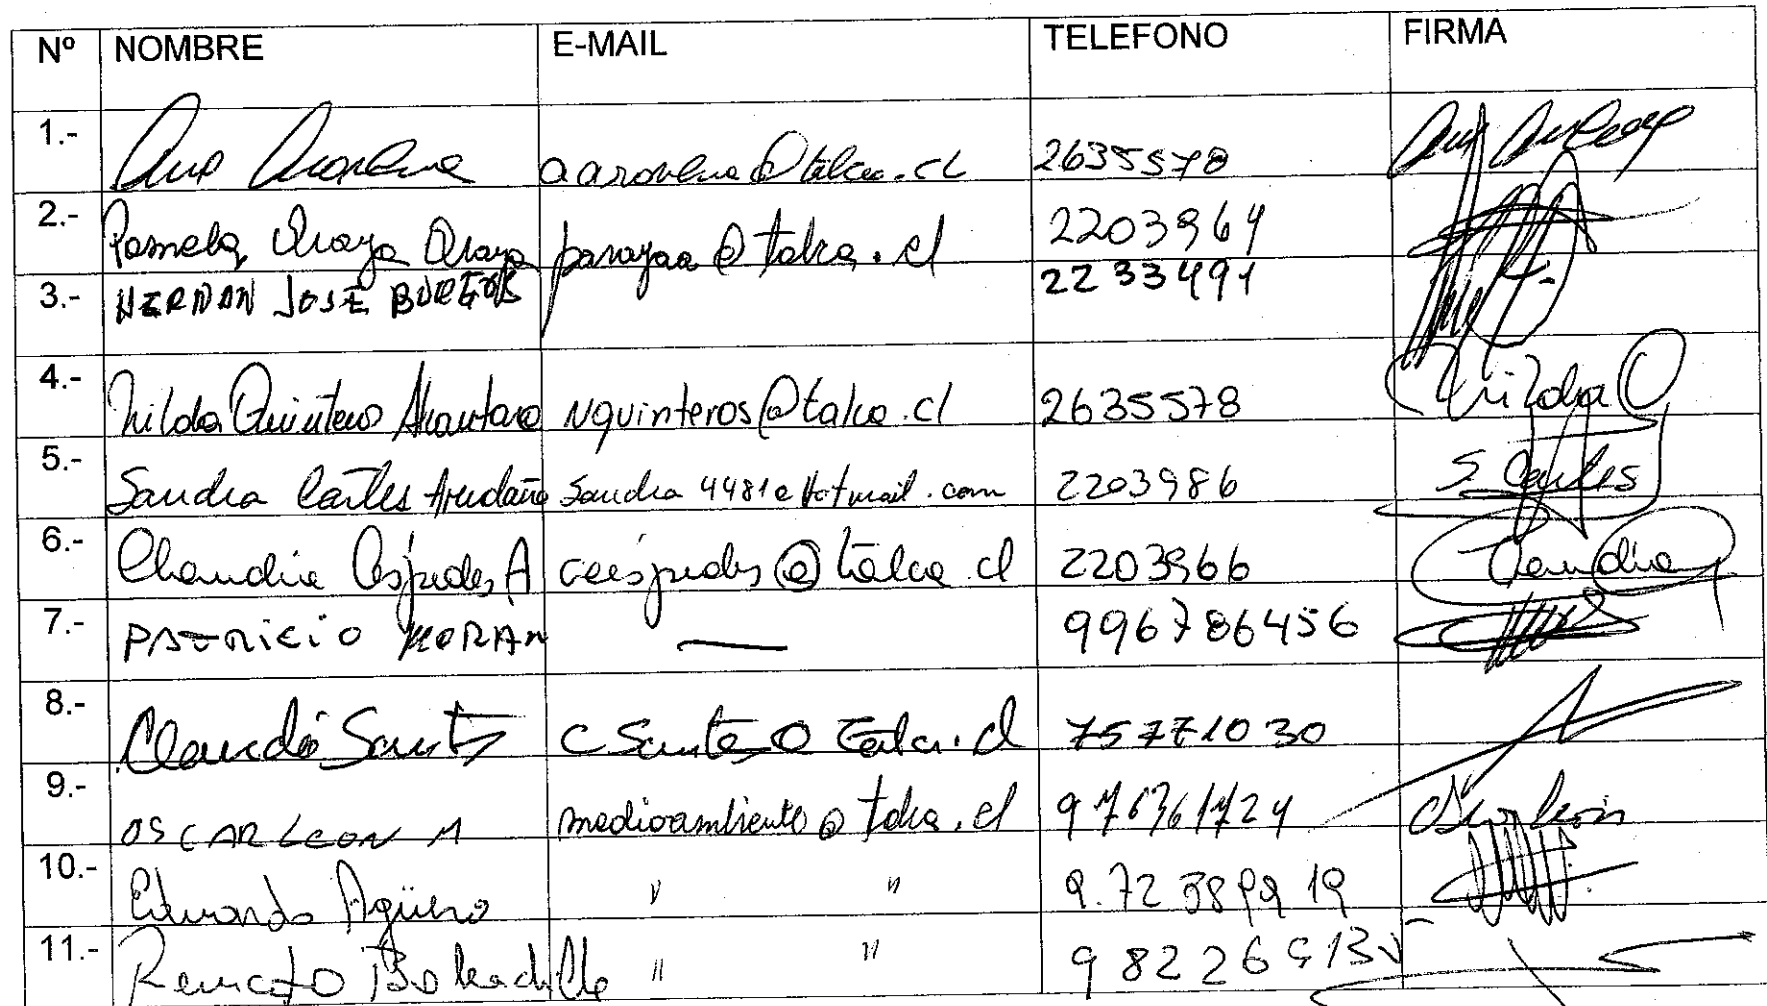 Nº NOMBRE E-MAIL TELEFONO FIRMA
1.- Ana Aravena aaravena@talca.cl 2635578
2.- Pamela Araya Araya parayaa@talca.cl 2203964
3.- HERNAN JOSE BURGOS 2233491
4.- Nilda Quinteros Alcantara nquinteros@talca.cl 2635578 Nilda Q
5.- Sandra Cartes Avendaño Sandra4481@hotmail.com 2203986 S. Cartes
6.- Claudia Céspedes A ccespedes@talca.cl 2203966 Claudia
7.- PATRICIO MORAN — 996786456
8.- Claudio Santos csantos@talca.cl 75771030
9.- OSCAR LEON M medioambiente@talca.cl 976361724
10.- Eduardo Agüero " " 9.72389919
11.- Renato Bobadilla " "